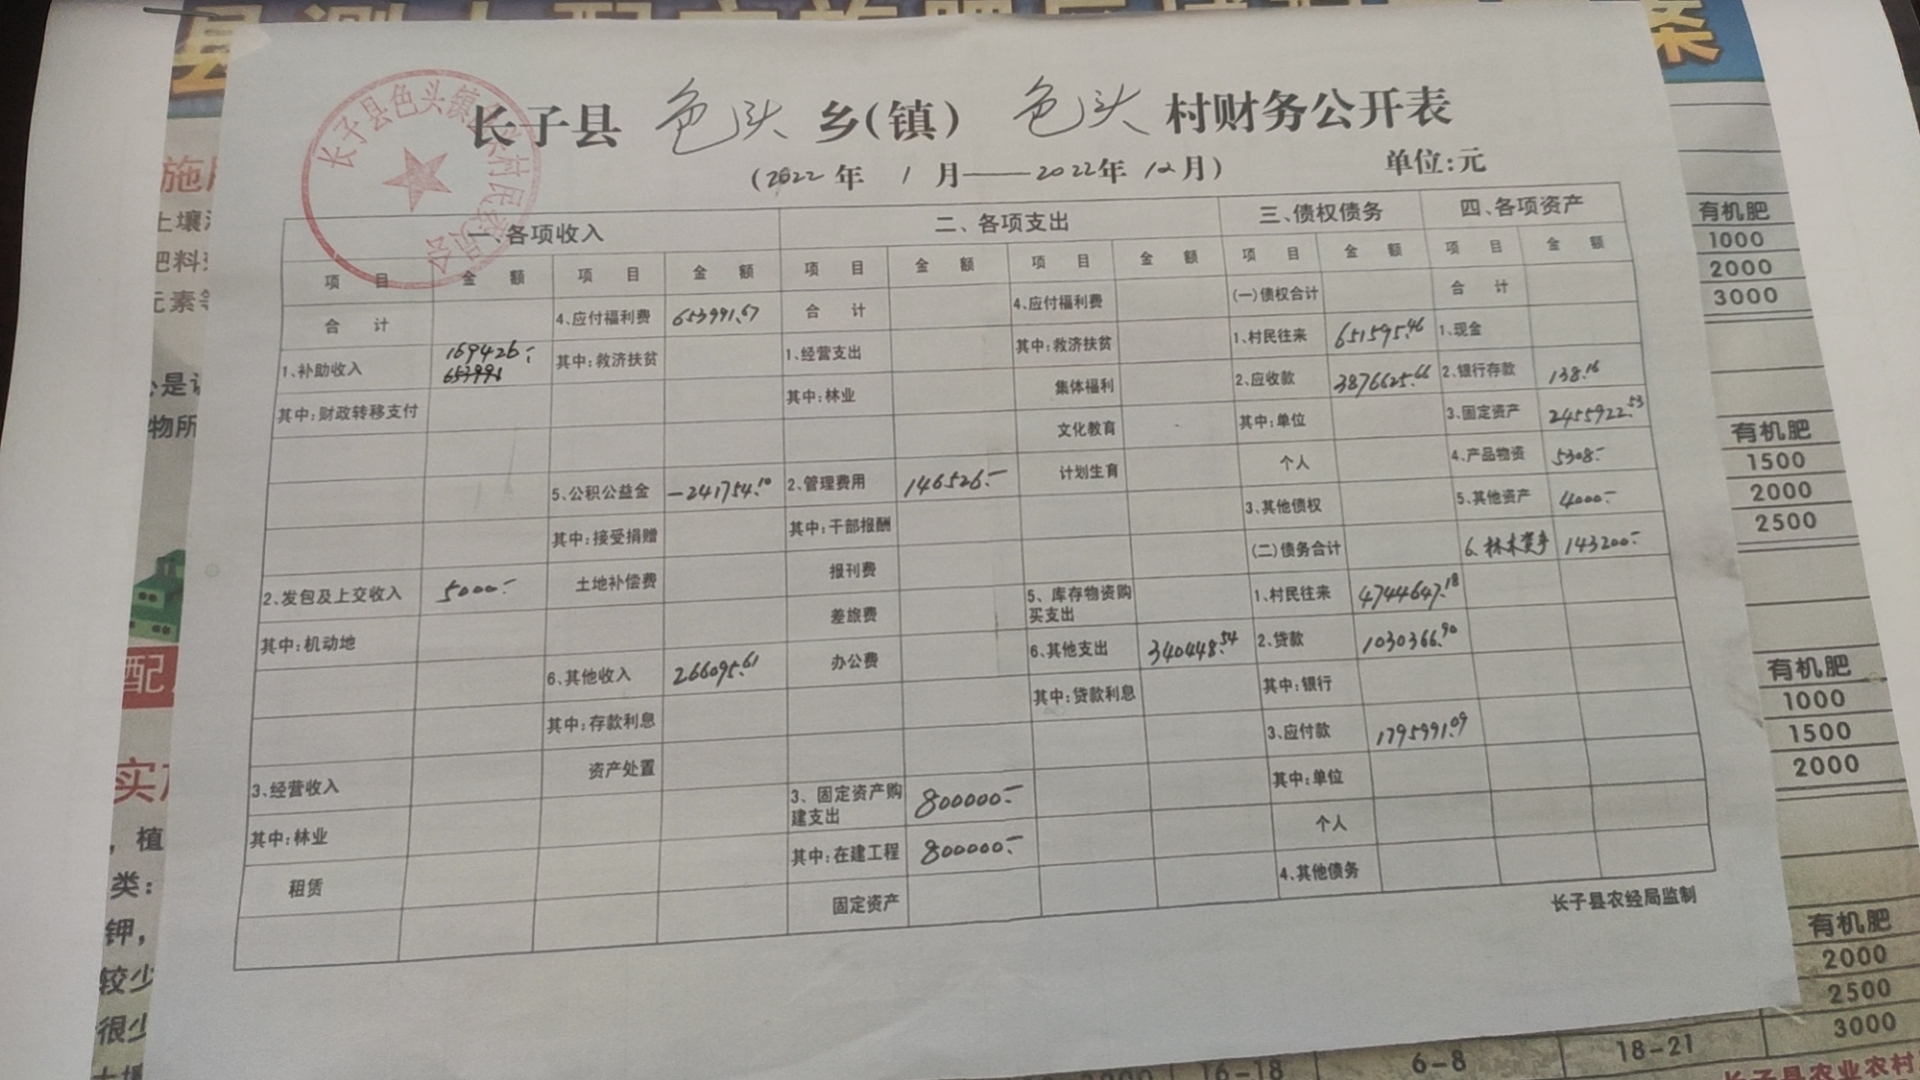 长子县 色头 乡(镇) 色头 村财务公开表
(2022年 1月——2022年 12月) 单位:元
长子县色头镇色头村民委员会
一、各项收入 二、各项支出 三、债权债务 四、各项资产
项目 金额 项目 金额 项目 金额 项目 金额 项目 金额 项目 金额
合计 4、应付福利费 653991.67 合计 4、应付福利费 (一)债权合计 合计
1、补助收入 169426.- 653991 其中:救济扶贫 1、经营支出 其中:救济扶贫 1、村民往来 651595.46 1、现金
其中:财政转移支付 其中:林业 集体福利 2、应收款 3876625.66 2、银行存款 138.16
文化教育 其中:单位 3、固定资产 2455922.53
5、公积公益金 -241754.10 2、管理费用 146526.- 计划生育 个人 4、产品物资 5308.-
其中:接受捐赠 其中:干部报酬 3、其他债权 5、其他资产 4000.-
2、发包及上交收入 5000.- 土地补偿费 报刊费 (二)债务合计 6、林木资产 143200.-
其中:机动地 差旅费 5、库存物资购买支出 1、村民往来 4744647.18
6、其他收入 266095.61 办公费 6、其他支出 340448.54 2、贷款 1030366.90
其中:存款利息 其中:贷款利息 其中:银行
3、经营收入 资产处置 3、应付款 1795991.09
其中:林业 3、固定资产购建支出 800000.- 其中:单位
租赁 其中:在建工程 800000.- 个人
固定资产 4、其他债务
长子县农经局监制
有机肥
1000
2000
3000
有机肥
1500
2000
2500
有机肥
1000
1500
2000
有机肥
2000
2500
3000
16-18 6-8 18-21
长子县农业农村